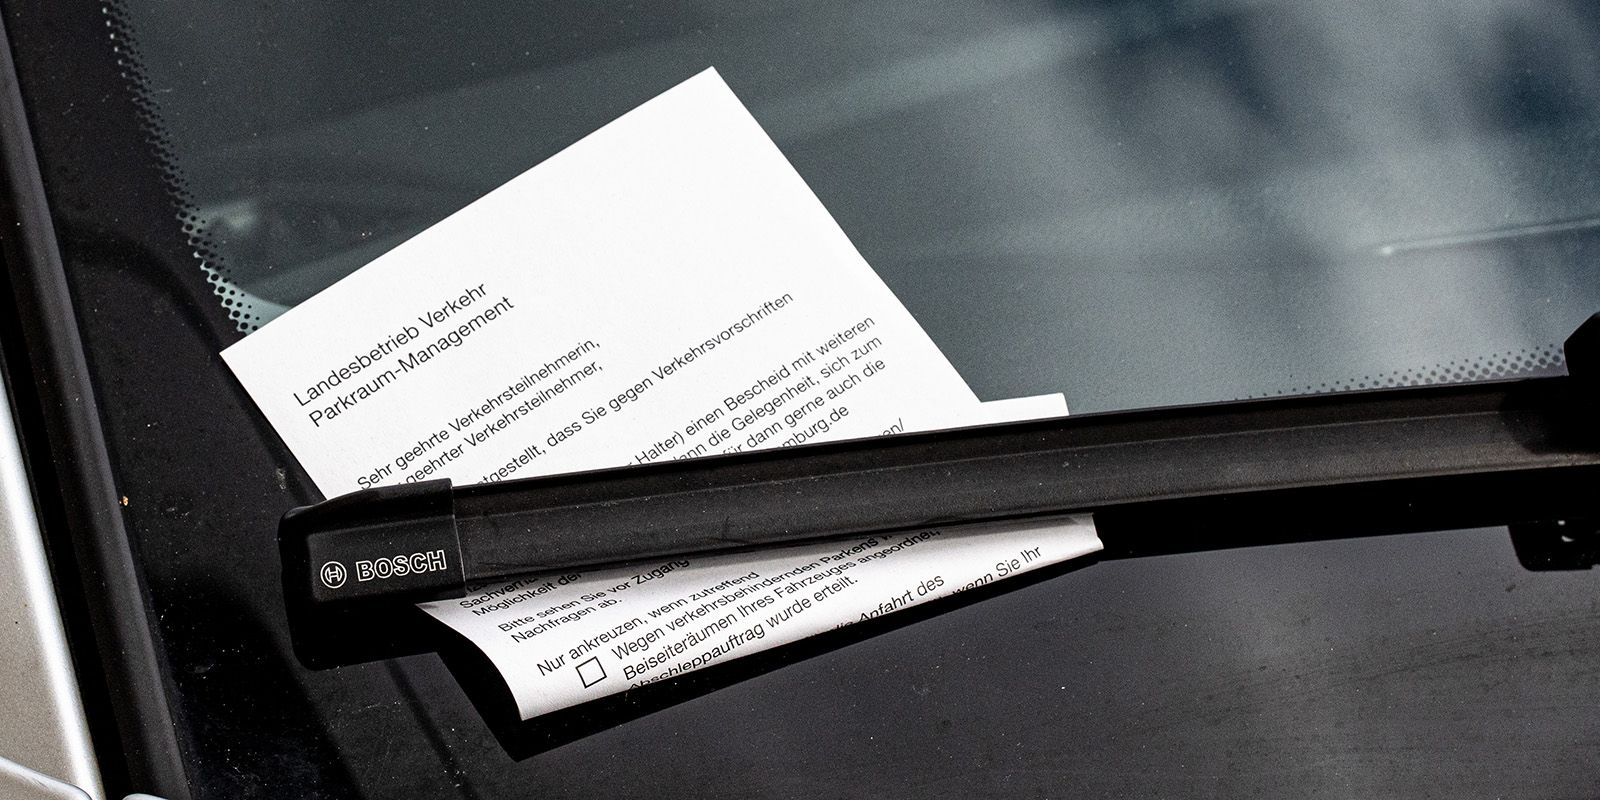 Landesbetrieb Verkehr
Parkraum-Management
Sehr geehrte Verkehrsteilnehmerin,
geehrter Verkehrsteilnehmer,
tgestellt, dass Sie gegen Verkehrsvorschriften
Halter) einen Bescheid mit weiteren
dann die Gelegenheit, sich zum
für dann gerne auch die
mburg.de
en/
BOSCH
Möglichkeit der
Bitte sehen Sie vor Zugang
Nachfragen ab.
Nur ankreuzen, wenn zutreffend
Wegen verkehrsbehindernden Parkens
Beiseiteräumen Ihres Fahrzeuges angeordnet,
Abschleppauftrag wurde erteilt.
die Anfahrt des
wenn Sie Ihr